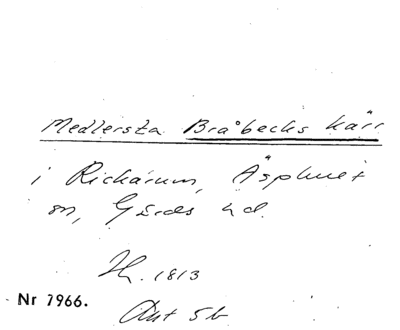 Medlersta Bråbecks kärr
i Rickarum, Äsphult
sn, Gärds hd.
Th. 1813
Nr 7966.
Akt 5b